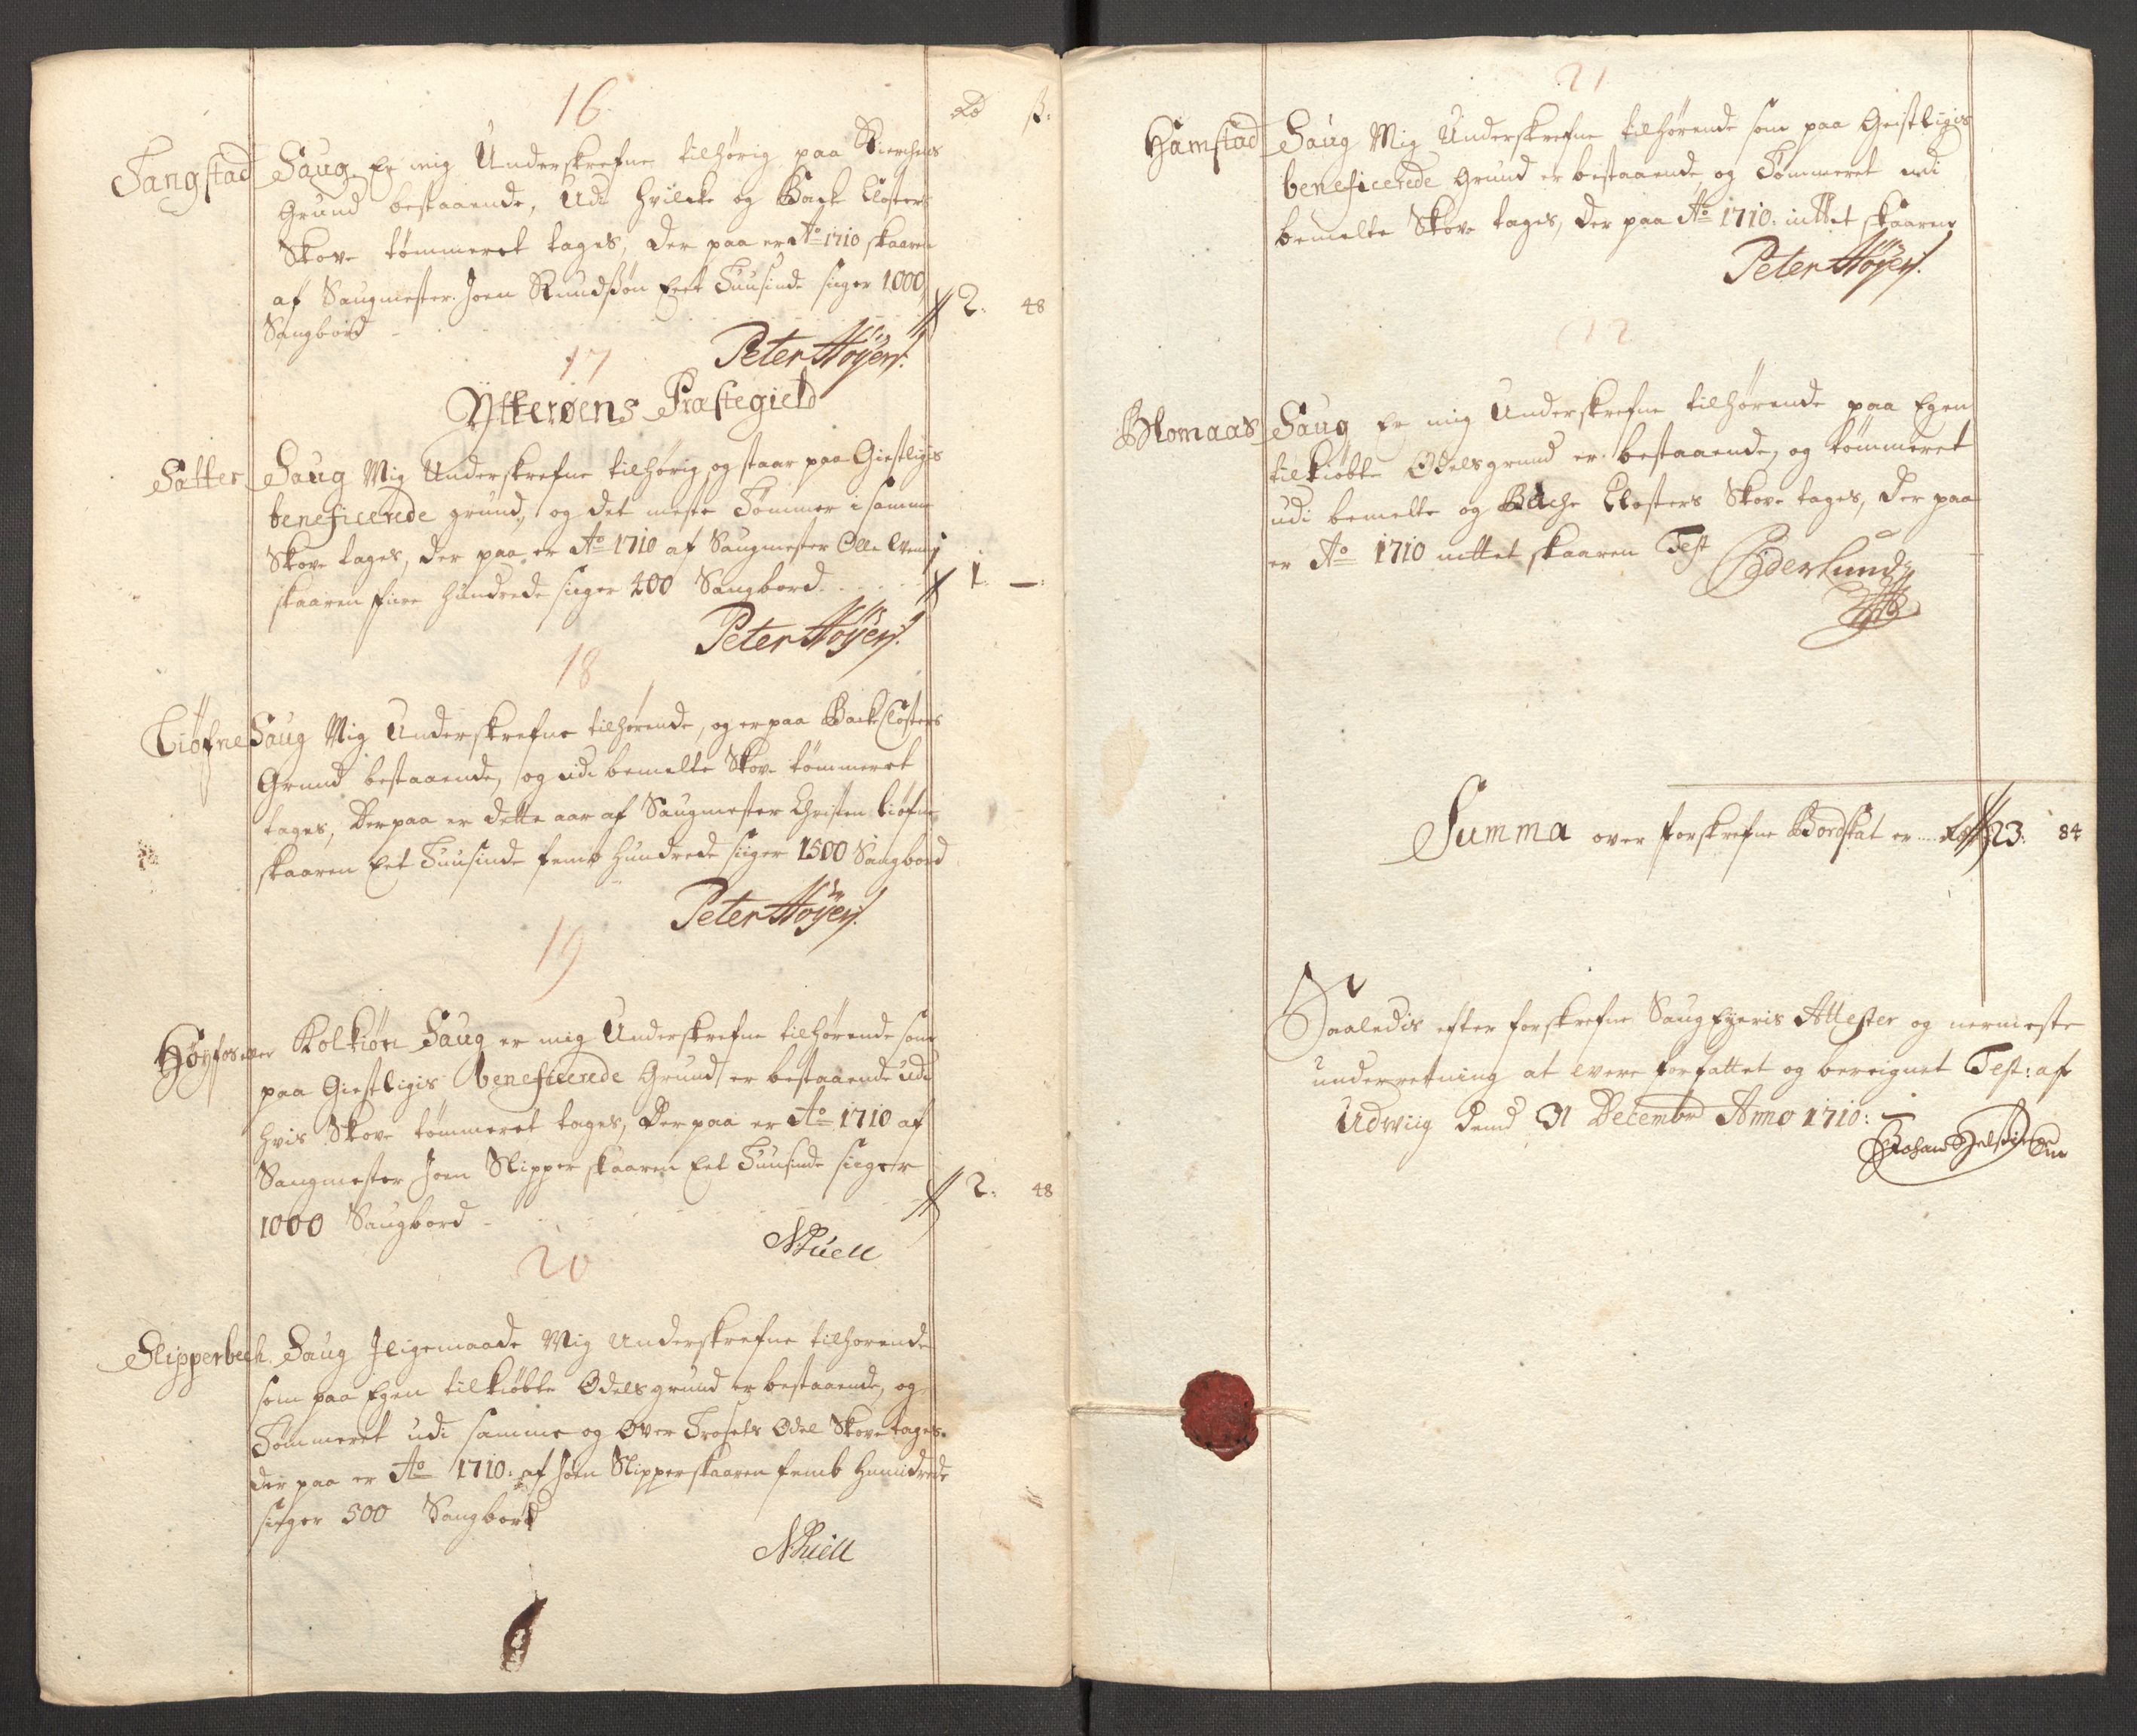 16
Rd ß:
Tangstad Saug Er mig Underskrefne tilhørig paa Kierchens
Grund bestaaende, Udi hvilcke og Backe Closters
Skove tømmeret tages, der paa er Ao 1710 skaaren
af Saugmester Joen Knudsøn Eet Tuusinde siiger 1000
Saugbord - 2: 48
Peter Høyer.
17
Ytterøens Præstegield
Sætter Saug Mig Underskrefne tilhørig og staar paa Giestligis
beneficerede grund, og det meste Tømmer i samme
Skove tages, der paa er Ao 1710 af Saugmester Olle
skaaren fiire hundrede siiger 400 Saugbord 1: —:
Peter Høyer.
18
Liøfne Saug Mig Underskrefne tilhørende, og er paa Backe Closters
Grund bestaaende, og udi bemelte Skove tømmeret
tages, Der paa er dette aar af Saugmester Christen Liøfne
skaaren Eet Tuusinde femb hundrede siiger 1500 Saugbord
Peter Høyer.
19
Høyfos eller Kolkiøn Saug er mig Underskrefne tilhørende som
paa Giestligis beneficerede Grund er bestaaende udi
hvis Skove tømmeret tages, Der paa er Ao 1710 af
Saugmester Joen Slipper skaaren Eet Tuusinde siiger
1000 Saugbord - 2: 48
20
Slipperbech Saug Jligemaade Mig Underskrefne tilhørende
som paa Egen tilkiøbte Odels grund er bestaaende, og
Tømmeret udi samme og Over Troesets Odel Skove tages.
der paa er Ao 1710: af Joen Slipper skaaren femb Hundrede
siiger 500 Saugbord
21
Hamstad Saug Mig Underskrefne tilhørende som paa Geistligis
beneficerede Grund er bestaaende og Tømmeret udi
bemelte Skove tages, der paa Ao 1710: inttet skaaren
Peter Høyer.
22
Blomaas Saug Er mig Underskrefne tilhørende paa Egen
tilkiøbte Odels grund er bestaaende, og tømmeret
udi bemelte og Backe Closters Skove tages, der paa
er Ao 1710 inttet skaaren Test Peder Lund
Summa over forskrefne Bordskat er .... Rd 23: 84
Saaledis efter forskrefne Saug Eyeris Attester og nermeste
underretning at være forfattet og bereignet Test: af
Udwiig dend 31 Decembr Anno 1710: